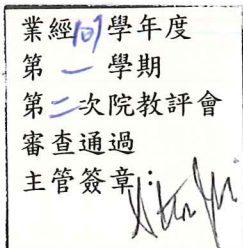 業經107學年度
第一學期
第二次院教評會
審查通過
主管簽章: